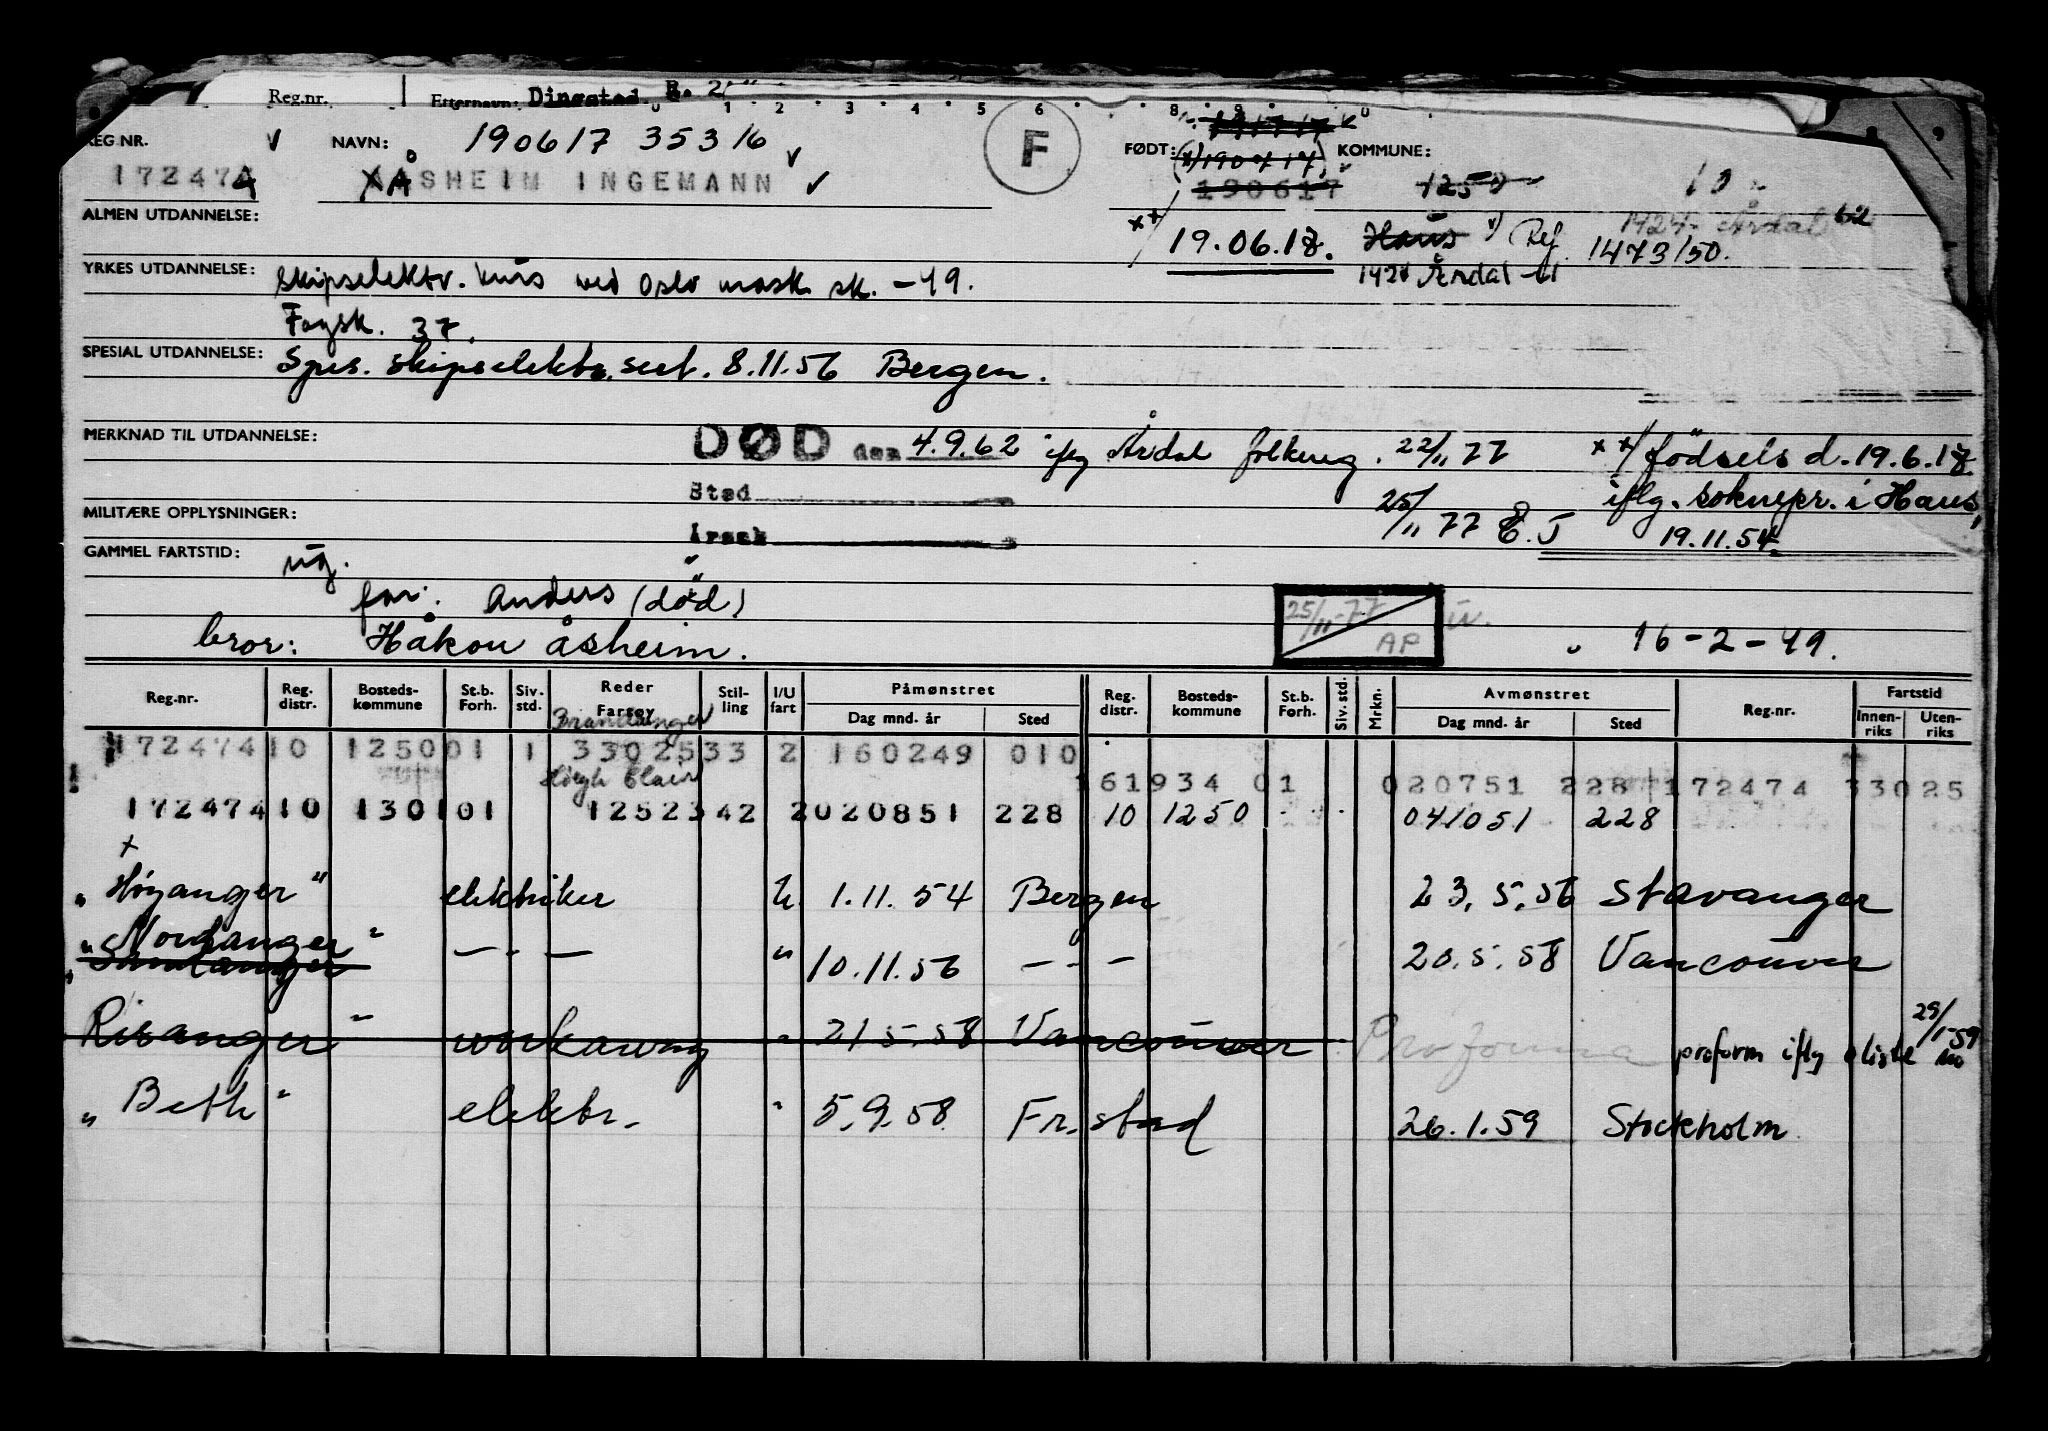 Reg.nr. Etternavn: Dingstad. B. 2
0 1 2 3 4 5 6 7 8 9 0
REG NR. NAVN: 190617 35316 F FØDT: KOMMUNE:
172474 ÅSHEIM INGEMANN 190617 1250 10
ALMEN UTDANNELSE: 1424 Årdal 62
19.06.17. Haus Ref. 1473/50.
YRKES UTDANNELSE: Skipselektr. kurs ved Oslo mask. sk. -49. 1424 Årdal -61
Fagsk. 37.
SPESIAL UTDANNELSE: Spes. skipselektr. sert. 8.11.56 Bergen.
MERKNAD TIL UTDANNELSE: DØD den 4.9.62 iflg Årdal folkereg. 22/11 77 xx/ fødsels d. 19.6.17
Sted iflg. soknepr. i Haus,
MILITÆRE OPPLYSNINGER: Årsak 25/11 77 E.J 19.11.54.
GAMMEL FARTSTID: ug.
far: Anders (død) 25/11-77 AP u.
bror: Håkon Åsheim. 16-2-49.
Reg.nr. Reg. distr. Bosteds-kommune St.b. Forh. Siv. std. Reder Fartøy Stil-ling I/U fart Påmønstret Dag mnd. år Sted Reg. distr. Bosteds-kommune St.b. Forh. Siv. std. Mrkn. Avmønstret Dag mnd. år Sted Reg.nr. Fartstid Innen-riks Uten-riks
Brandanger
172474 10 1250 01 1 33025 33 2 160249 010
Høegh Clair 161934 01 020751 228 172474 33025
172474 10 1301 01 12523 42 2 020851 228 10 1250 041051 228
"Høyanger" elektriker U. 1.11.54 Bergen 23.5.56 Stavanger
"Nordanger" — . — " 10.11.56 — - — 20.5.58 Vancouver
"Samdanger"
Risanger" workaway " 21.5.58 Vancouver Proforma proform iflg liste 29/1-59
"Beth" elektr. " 5.9.58 Fr.stad 26.1.59 Stockholm